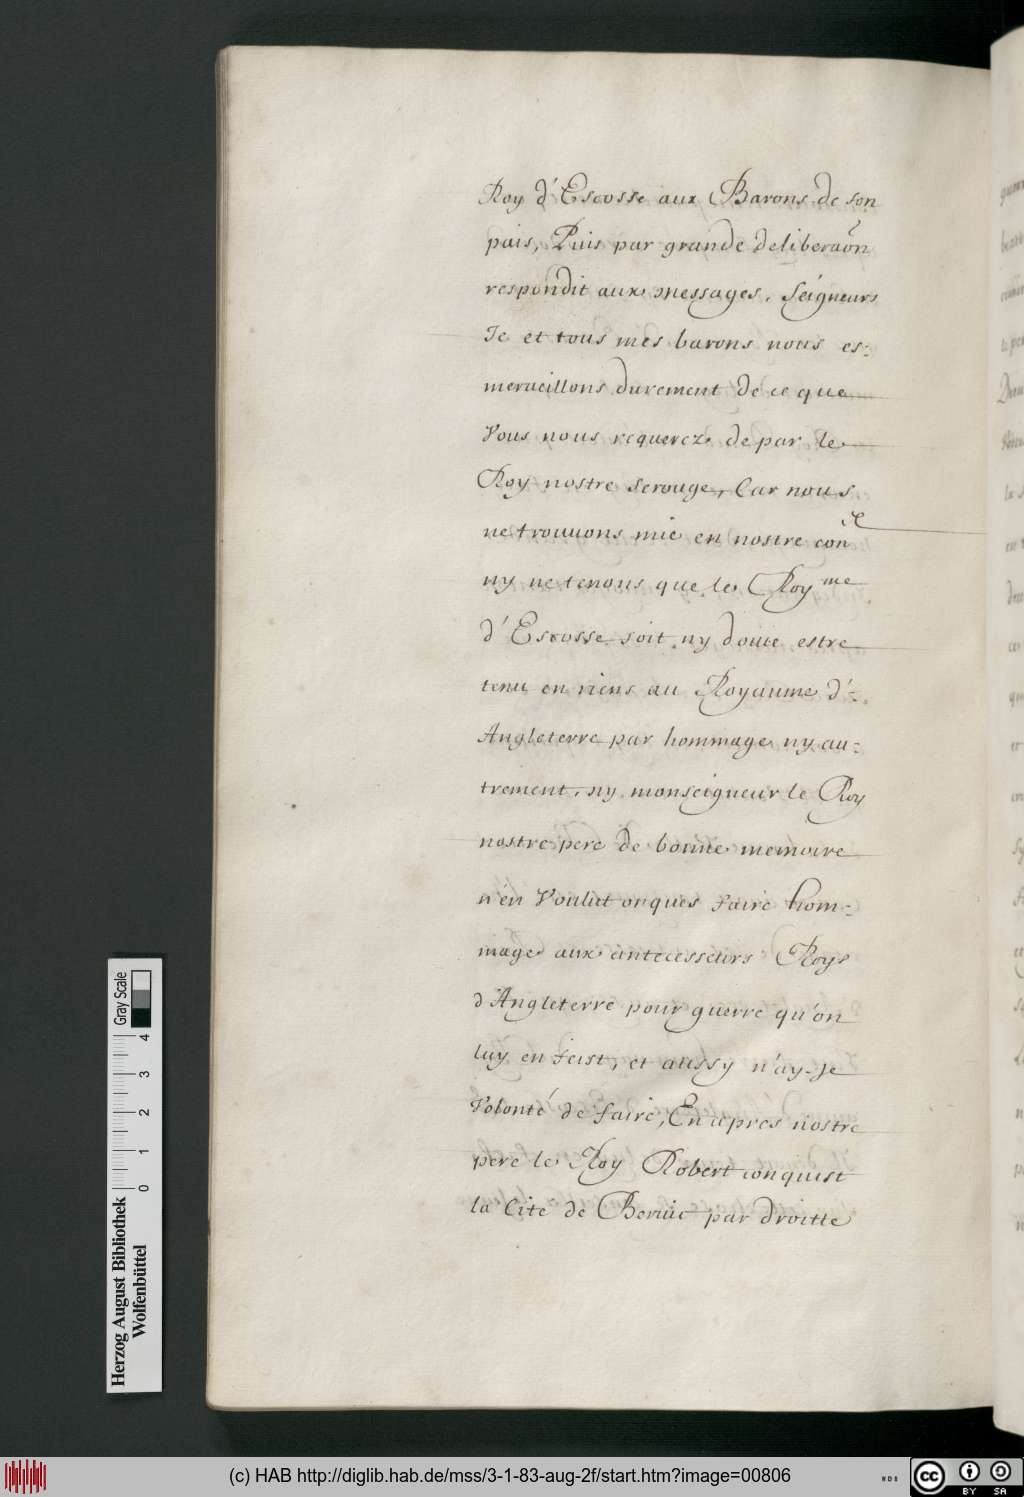 Roy d'Escosse aux Barons de son
pais, Puis par grande deliberaõn
respondit aux messages, Seigneurs
Je et tous mes barons nous es-
merueillons durement de ce que
Vous nous requerez de par le
Roy nostre serouge, Car nous
ne trouuons mie en nostre con^el
ny ne tenons que le Roy^me
d'Escosse soit ny doiue estre
tenu en riens au Royaume d'-
Angleterre par hommage ny au-
trement, ny monseigneur le Roy
nostre pere de bonne memoire
n'en Voulut onques faire hom-
mage aux antecesseurs Roys
d'Angleterre pour guerre qu'on
luy en feist, et aussy n'ay-je
Volonté de faire, En apres nostre
pere le Roy Robert conquist
la Cité de Beruic par droitte
Herzog August Bibliothek
Wolfenbüttel
0 1 2 3 4
Gray Scale
(c) HAB http://diglib.hab.de/mss/3-1-83-aug-2f/start.htm?image=00806
WDB
cc BY SA